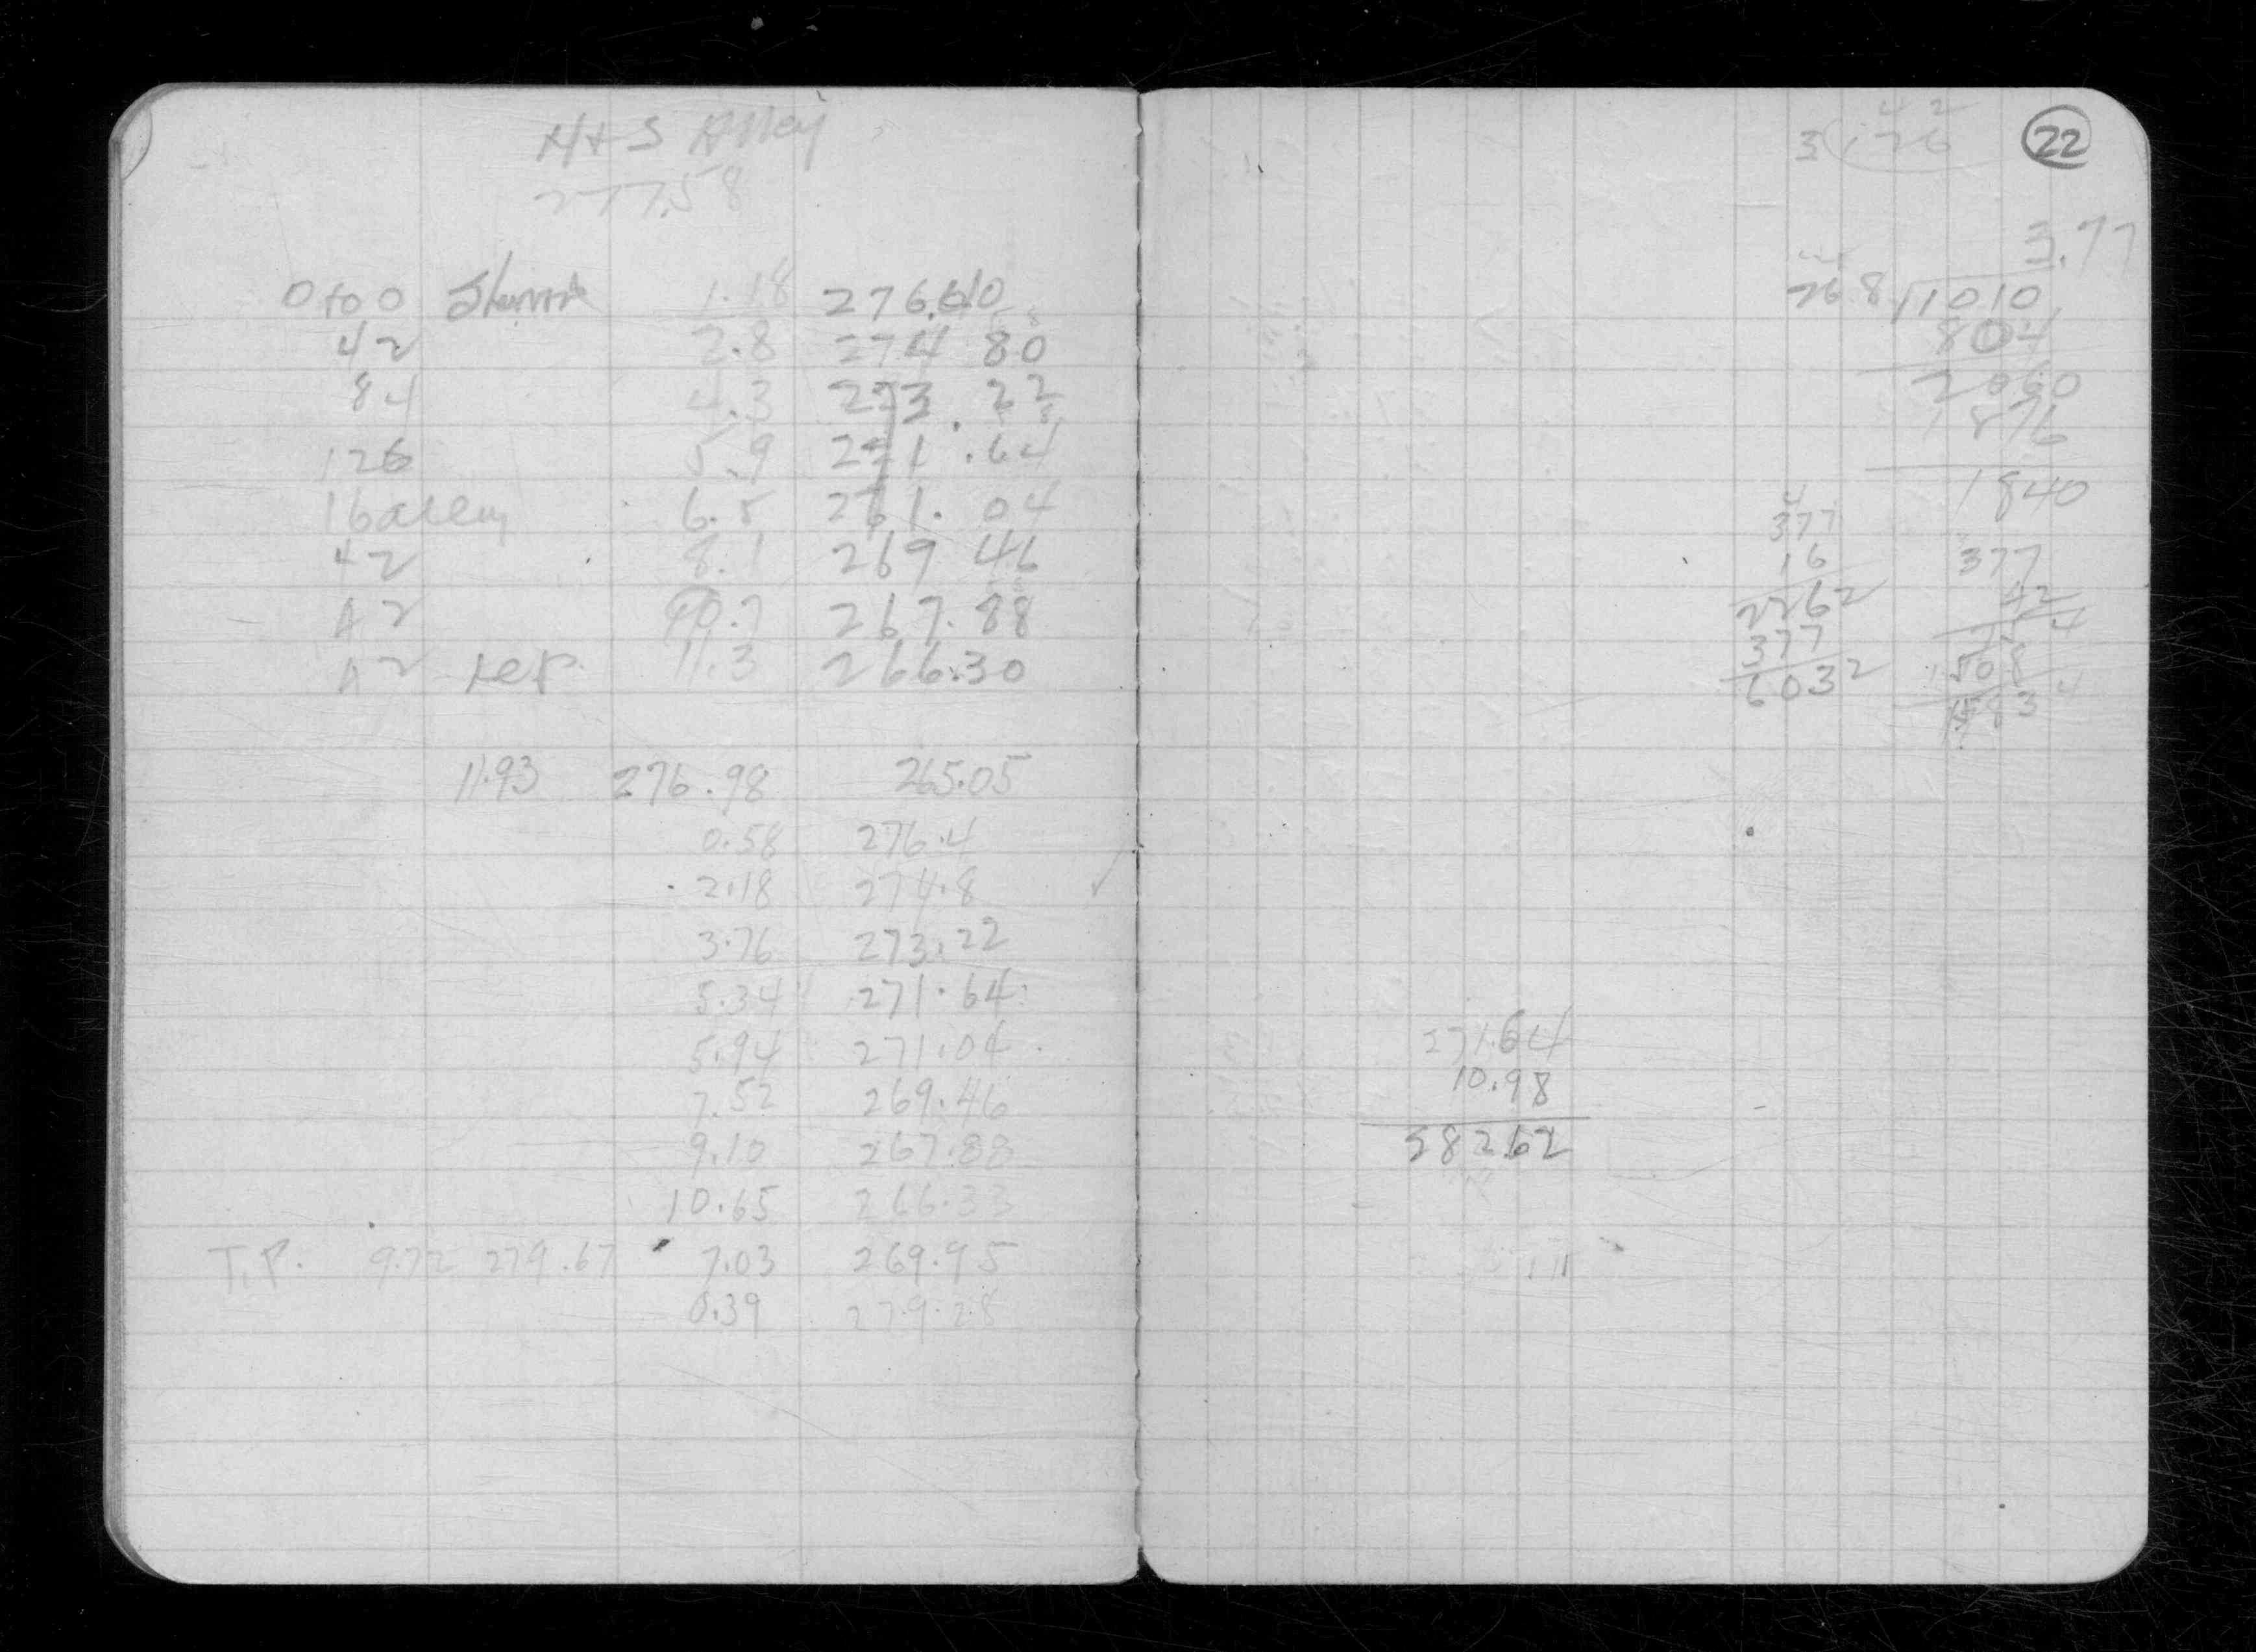 H + S Alley
277.58
0 to 0 1.18 276.40
42 2.8 274 80
84 4.3 273.22
126 5.9 271.64
16 alley 6.5 271.04
42 8.1 269 46
42 10.7 267.88
42 11.3 266.30
11.93 276.98 265.05
0.58 276.4
2.18 274.8
3.76 273.22
5.34 271.64
5.94 271.04
7.52 269.46
9.10 267.88
10.65 266.33
T.P. 9.72 279.67 7.03 269.95
0.39 279.28
42
3 126
22
3.77
268 11010
804
2060
1876
1840
377
16
2262
377
6032
377
42
754
1508
15834
271.64
10.98
282.62